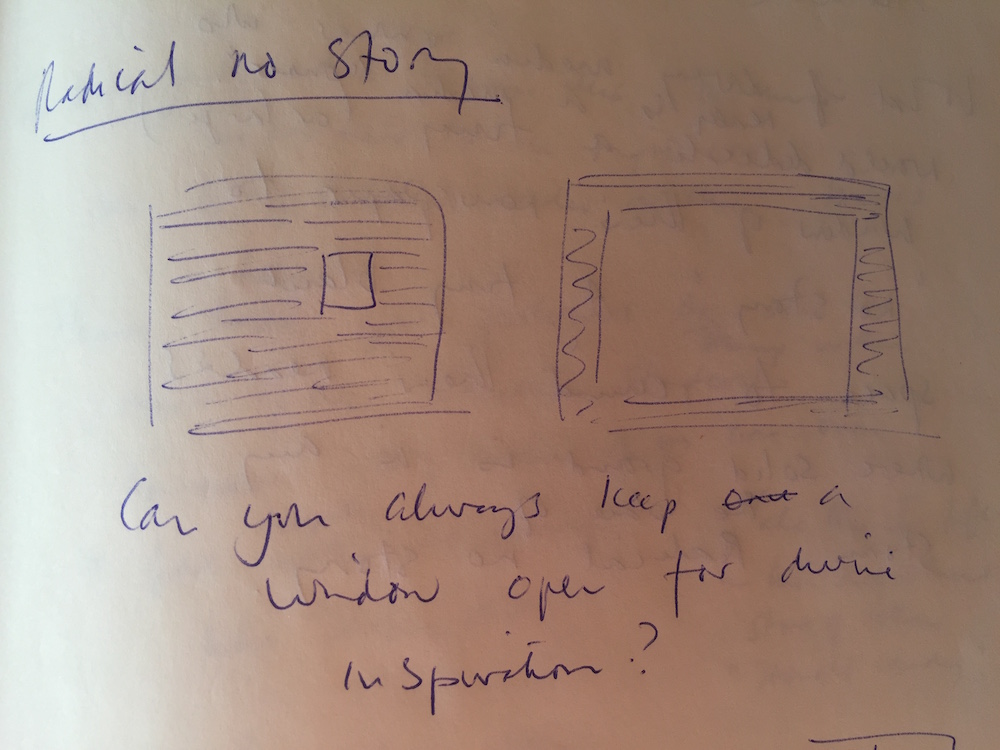 Radical no story
Can you always keep a
window open for divine
inspiration?